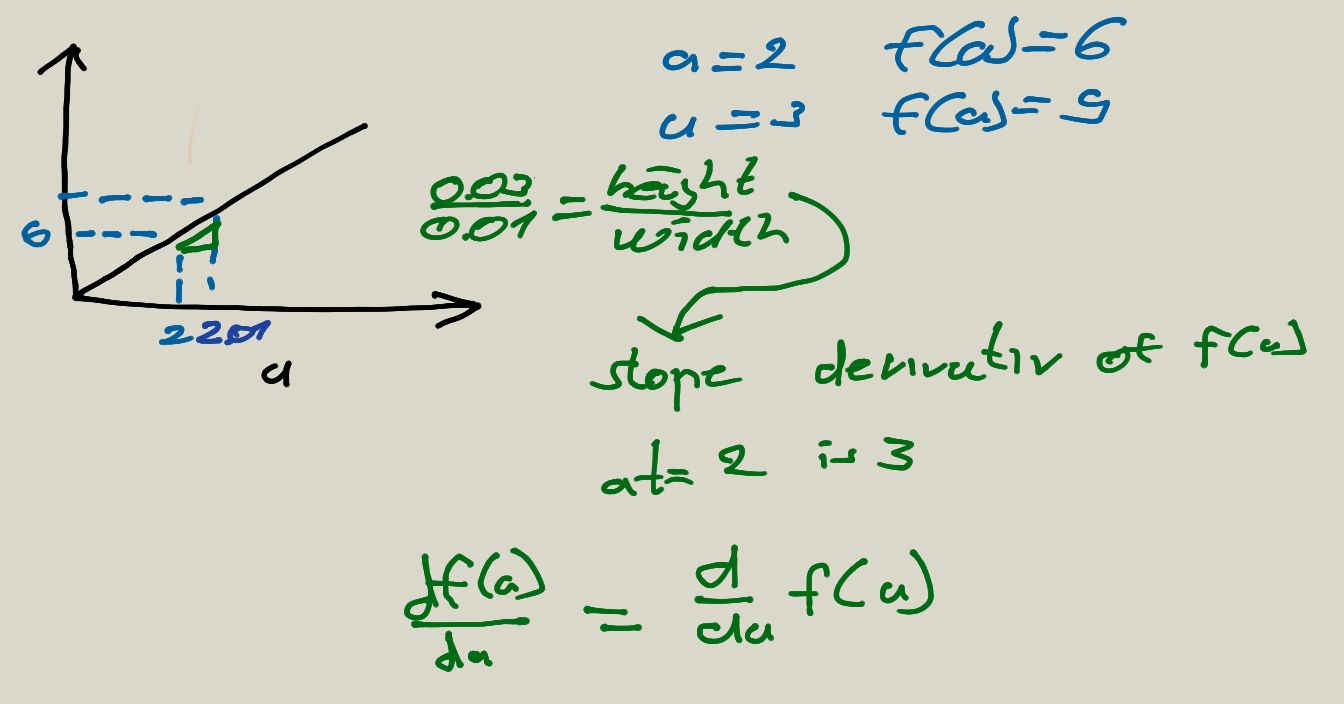 a = 2 f(a) = 6
a = 3 f(a) = 9
0.03/0.01 = height/width
6
2 2.01
a
slope derivativ of f(a)
at = 2 is 3
df(a)/da = d/da f(a)